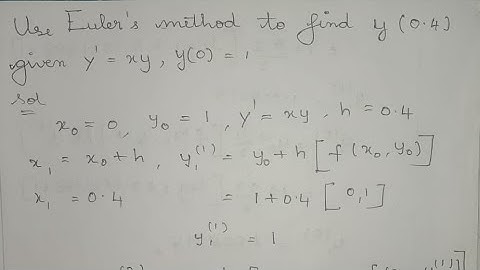 Use Euler's method to find y(0.4)
given y' = xy, y(0) = 1
sol
x₀ = 0, y₀ = 1, y' = xy, h = 0.4
x₁ = x₀ + h, y₁⁽¹⁾ = y₀ + h [f(x₀, y₀)]
x₁ = 0.4 = 1 + 0.4 [0, 1]
y₁⁽¹⁾ = 1